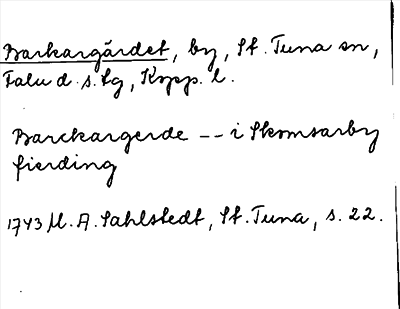 Barkargärdet, by, St. Tuna sn,
Falu d. s. lg, Kopp. l.
Barckargerde -- i Skomsarby
fierding
1743 M. A. Sahlstedt, St. Tuna, s. 22.